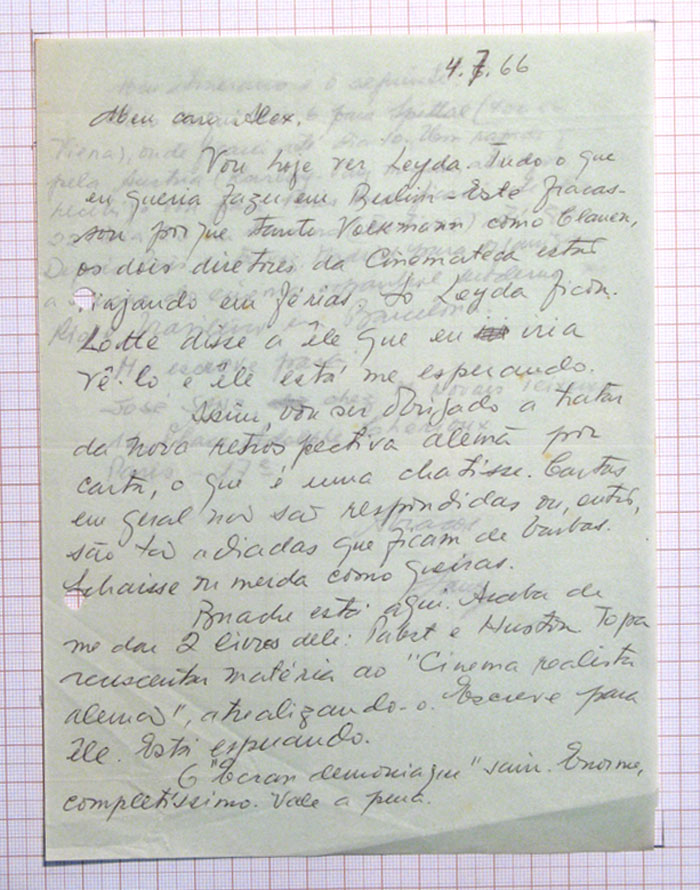 4.7.66
Meu caro Alex.
Vou hoje ver Leyda. Tudo o que
eu queria fazer em Berlim-Este fracas-
sou porque tanto Volkmann como Clauen,
os dois diretores da Cinemateca estão
viajando em férias. Só Leyda ficou.
Lotte disse a êle que eu iria
vê-lo e êle está me esperando.
Assim, vou ser obrigado a tratar
da nova retrospectiva alemã por
carta, o que é uma chatisse. Cartas
em geral não são respondidas ou, então,
são tão adiadas que ficam de barbas.
Schaisse ou merda como queiras.
está aqui. Acaba de
me dar 2 livros dele: Pabst e Huston. Topa
acrescentar matéria ao "Cinema realista
alemão", atualizando-o. Escreve para
êle. Está esperando.
O "Écran démoniaque" saiu. Enorme,
completíssimo. Vale a pena.